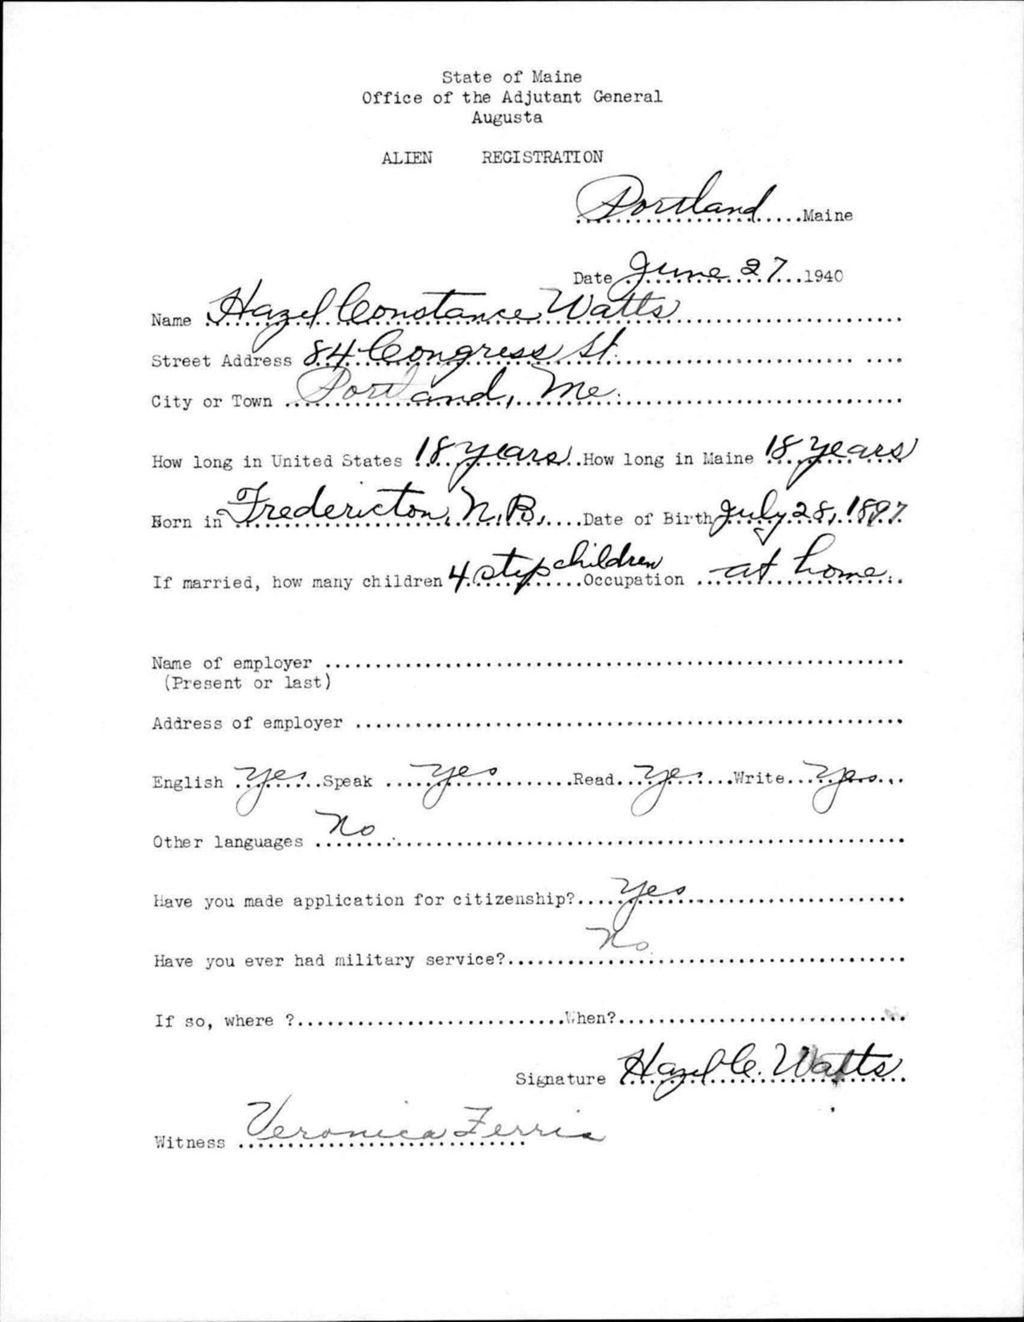 State of Maine
Office of the Adjutant General
Augusta
ALIEN REGISTRATION
Portland Maine
Date June 27 1940
Name Hazel Constance Watts
Street Address 84 Congress St.
City or Town Portland, Me.
How long in United States 18 years How long in Maine 18 years
Born in Fredericton, N.B. Date of Birth July 28, 1897
If married, how many children 4 step children Occupation at home
Name of employer
(Present or last)
Address of employer
English Yes Speak Yes Read Yes Write Yes
Other languages No
Have you made application for citizenship? Yes
Have you ever had military service? No
If so, where ? When?
Signature Hazel C. Watts
Witness Veronica Ferris